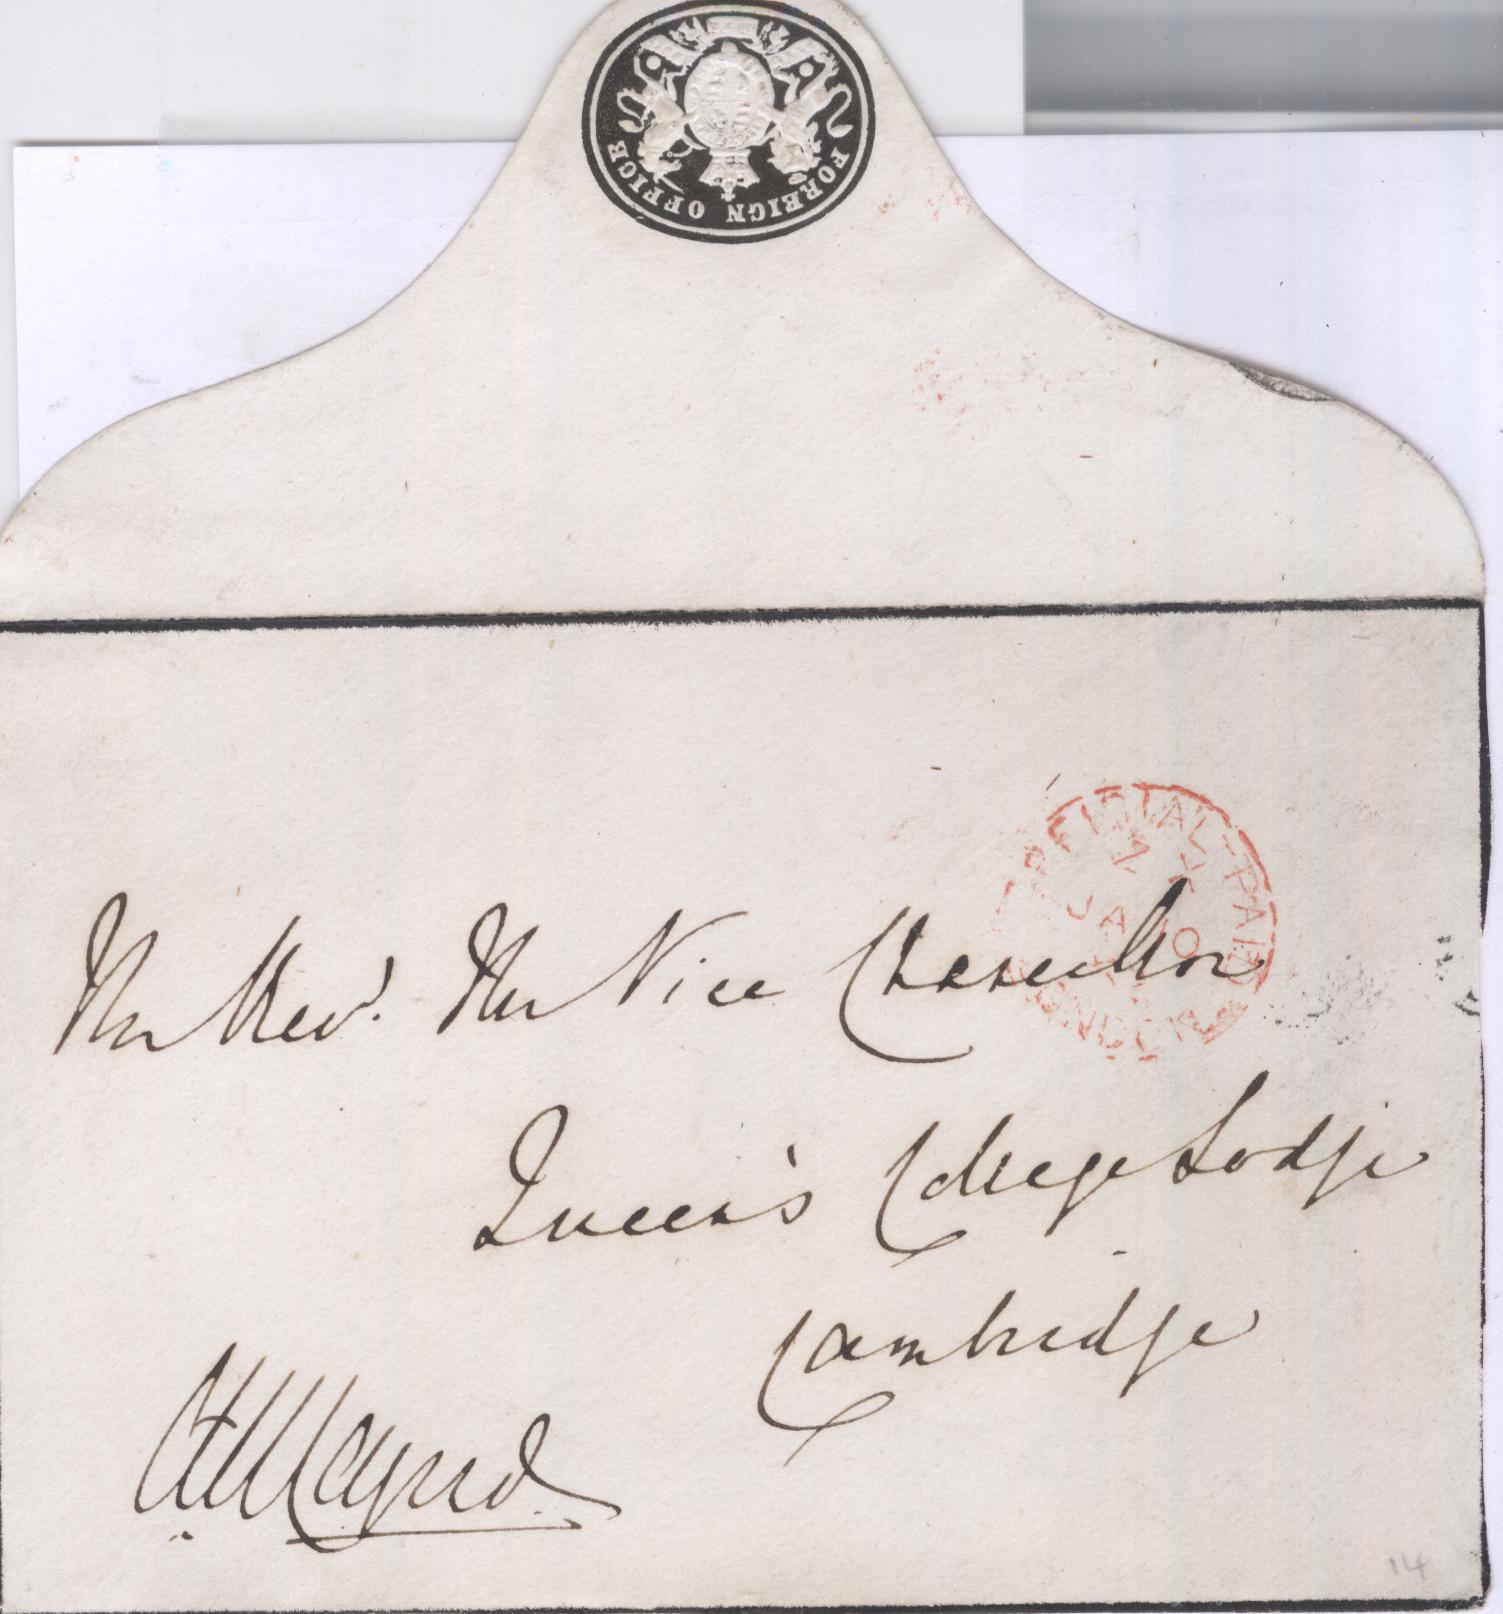 FOREIGN OFFICE
OFFICIAL PAID
JA 10
LONDON
The Rev.d The Vice Chancellor
Queen's College Lodge
Cambridge
14